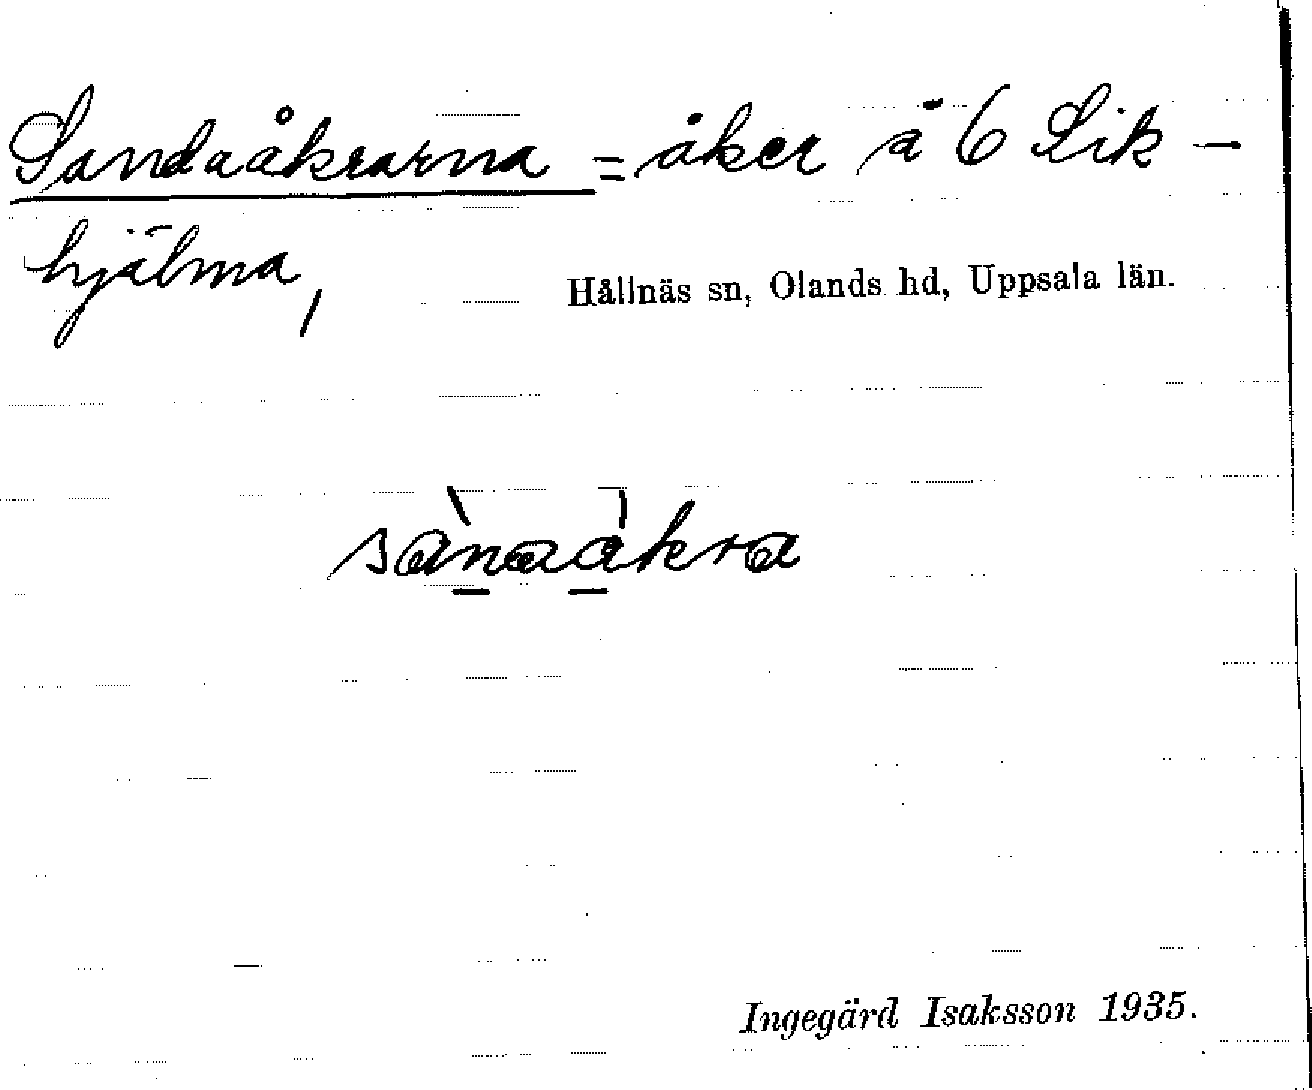 Sandaåkrarna = åker å 6 Sik-
hjälma,
Hållnäs sn, Olands hd, Uppsala län.
sànaákra
Ingegärd Isaksson 1935.